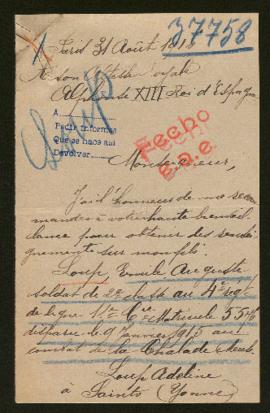 37758
31 Août 1915
A son Altesse royale
Alphonse XIII Roi d'Espagne
A
Pedir informes
que se hace aui
Devolver
Fecho
E. D. e.
Monseigneur,
J'ai l'honneur de me recom
mander à votre haute bienveil
lance pour obtenir des rensei
gnements sur mon fils.
Loup, Emile Auguste
soldat de 2e classe au 4e regt
de ligne 11e Cie Matricule 55
disparu le 9 Janvier 1915 au
combat de la Chalade Meuse.
Loup Adeline
à Saints (Yonne)